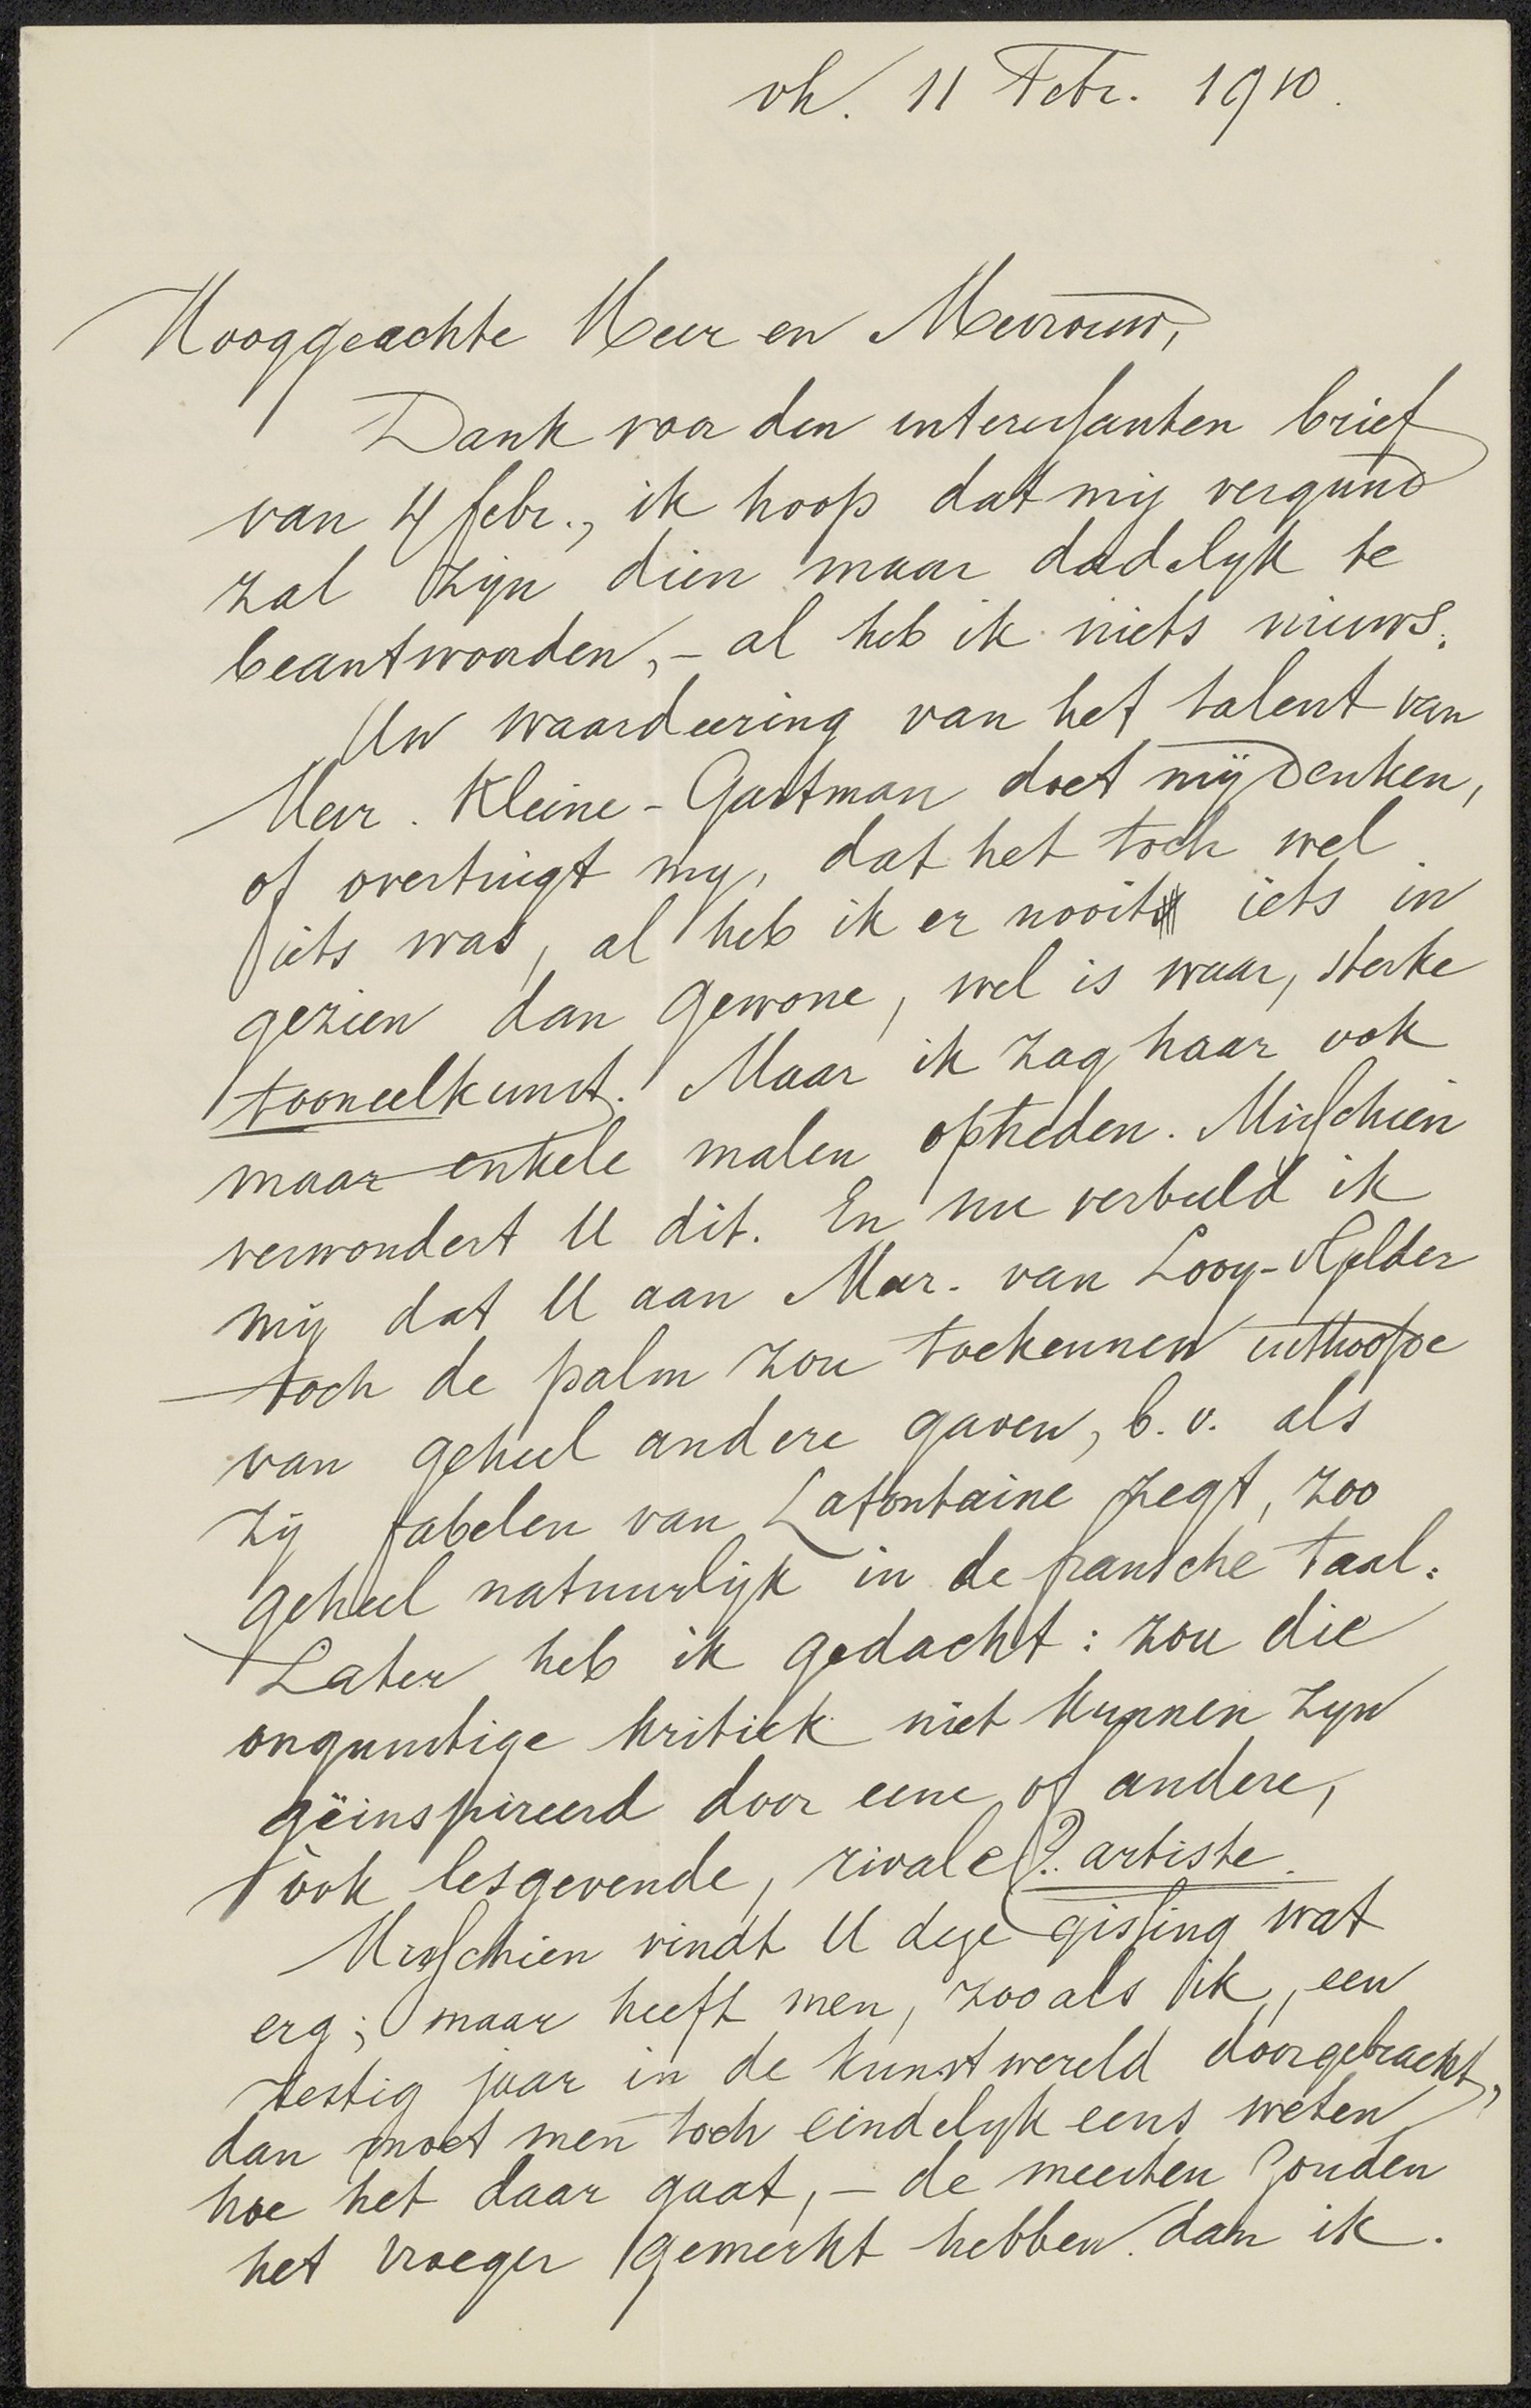 vh. 11 Febr. 1910.
Hooggeachte Heer en Mevrouw,
Dank voor den interessanten brief
van 4 febr., ik hoop dat mij vergund
zal zijn dien maar dadelijk te
beantwoorden, - al heb ik niets nieuws.
Uw waardeering van het talent van
Mevr. Kleine-Gartman doet mij denken,
of overtuigt mij, dat het toch wel
iets was, al heb ik er nooit iets in
gezien dan gewone, wel is waar, sterke
tooneelkunst. Maar ik zag haar ook
maar enkele malen optreden. Misschien
verwondert U dit. En nu verbeeld ik
mij dat U aan Mevr. van Looy-Gelder
toch de palm zou toekennen uithoofde
van geheel andere gaven, b.v. als
zij fabelen van Lafontaine zegt, zoo
geheel natuurlijk in de fransche taal.
Later heb ik gedacht: zou die
ongunstige kritiek niet kunnen zijn
geïnspireerd door eene of andere,
òok lesgevende, rivale?.. artiste.
Misschien vindt U deze gissing wat
erg; maar heeft men, zooals ik, een
zestig jaar in de kunstwereld doorgebracht,
dan moet men toch eindelijk eens weten
hoe het daar gaat, - de meesten zouden
het vroeger gemerkt hebben dan ik.